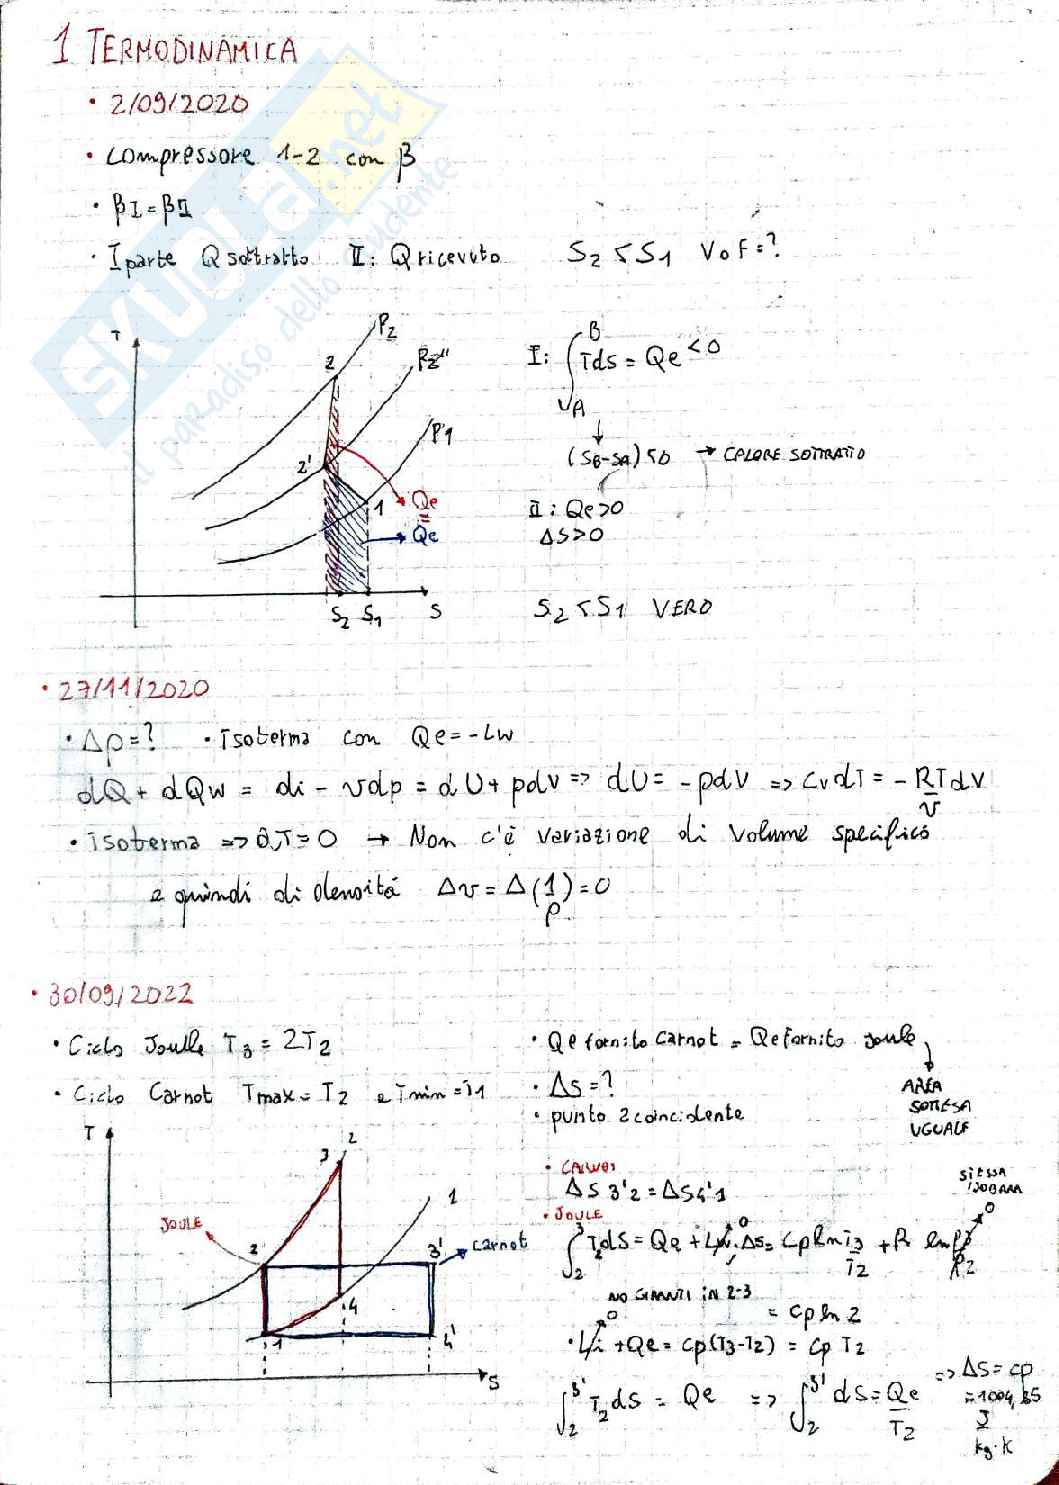 1 TERMODINAMICA
• 2/09/2020
• Compressore 1-2 con β
• βI = βII
• I parte Q sottratto II: Q ricevuto S2 < S1 V o F = ?
SKUOLA.net
il paradiso dello studente
T
P2
2
P2"
P1
2'
1
Qe
Qe
S2 S1 S
I: ∫A^B Tds = Qe < 0
(SB-SA) < 0 → CALORE SOTTRATTO
II: Qe > 0
ΔS > 0
S2 < S1 VERO
• 27/11/2020
• Δρ = ? • isoterma con Qe = -Lw
dQ + dQw = di - vdp = dU + pdv => dU = -pdV => CvdT = - RT/v dV
• isoterma => dT = 0 → Non c'è variazione di volume specifico
e quindi di densità Δv = Δ(1/ρ) = 0
• 30/09/2022
• Ciclo Joule T3 = 2T2
• Ciclo Carnot Tmax = T2 e Tmin = T1
• Qe fornito Carnot = Qe fornito Joule
AREA
SOTTESA
UGUALE
• Δs = ?
• punto 2 coincidente
T
3
2
1
JOULE
2
3'
Carnot
4
1
4'
S
Δs 3'2 = Δs4'1
• JOULE
STESSA
ISOBARA
∫2^3 Tds = Qe + Lw 0 Δs = Cp ln T3/T2 + R ln 0
P2
= cp ln 2
• Li 0 + Qe = cp(T3-T2) = cp T2
∫2^3' T2ds = Qe => ∫2^3' ds = Qe/T2
=> Δs = cp
= 1004,
J
kg·K